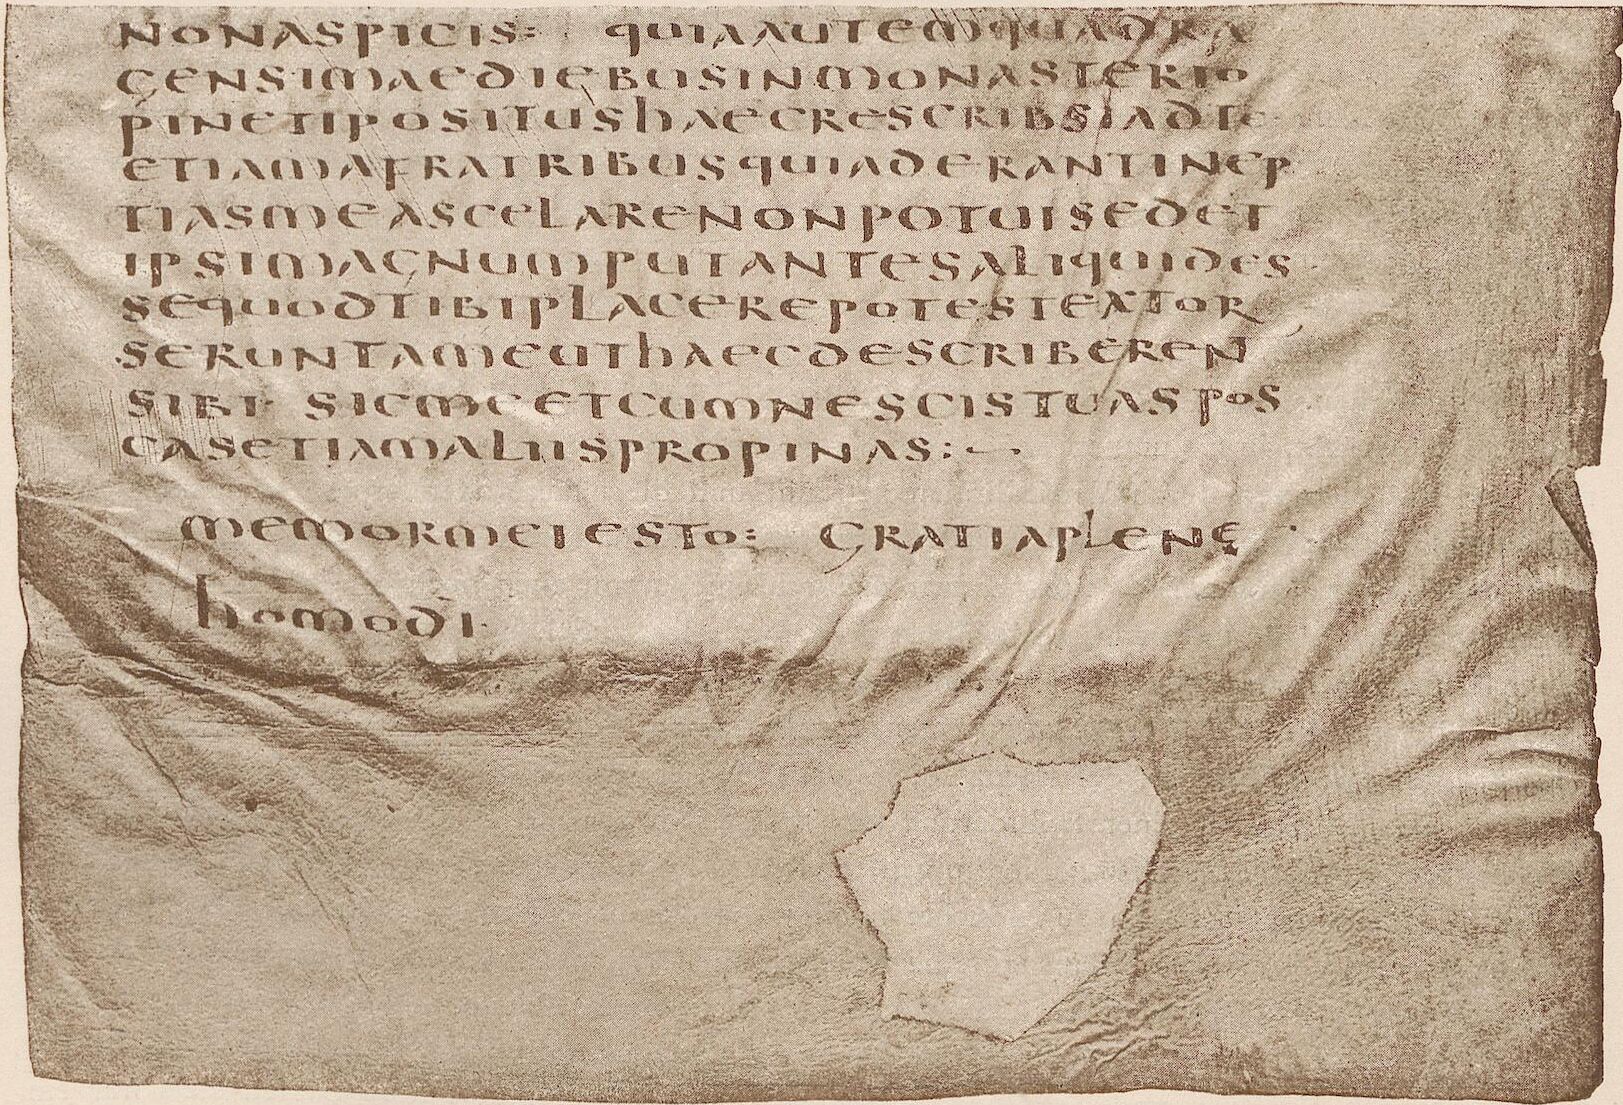 NONASPICIS: QUIAAUTEMQUADRA
GENSIMAEDIEBUSINMONASTERIO
PINETIPOSITUSHAECRESCRIBSIADTE
ETIAMAFRATRIBUSQUIADERANTINEP
TIASMEASCELARENONPOTUISEDET
IPSIMAGNUMPUTANTESALIQUIDES
SEQUODTIBIPLACEREPOTESTEXTOR
SERUNTAMEUTHAECDESCRIBEREN
SIBI SICMEETCUMNESCISTUASPOS
CASETIAMALIISPROPINAS:
MEMORMEIESTO: GRATIAPLENE
HOMODI